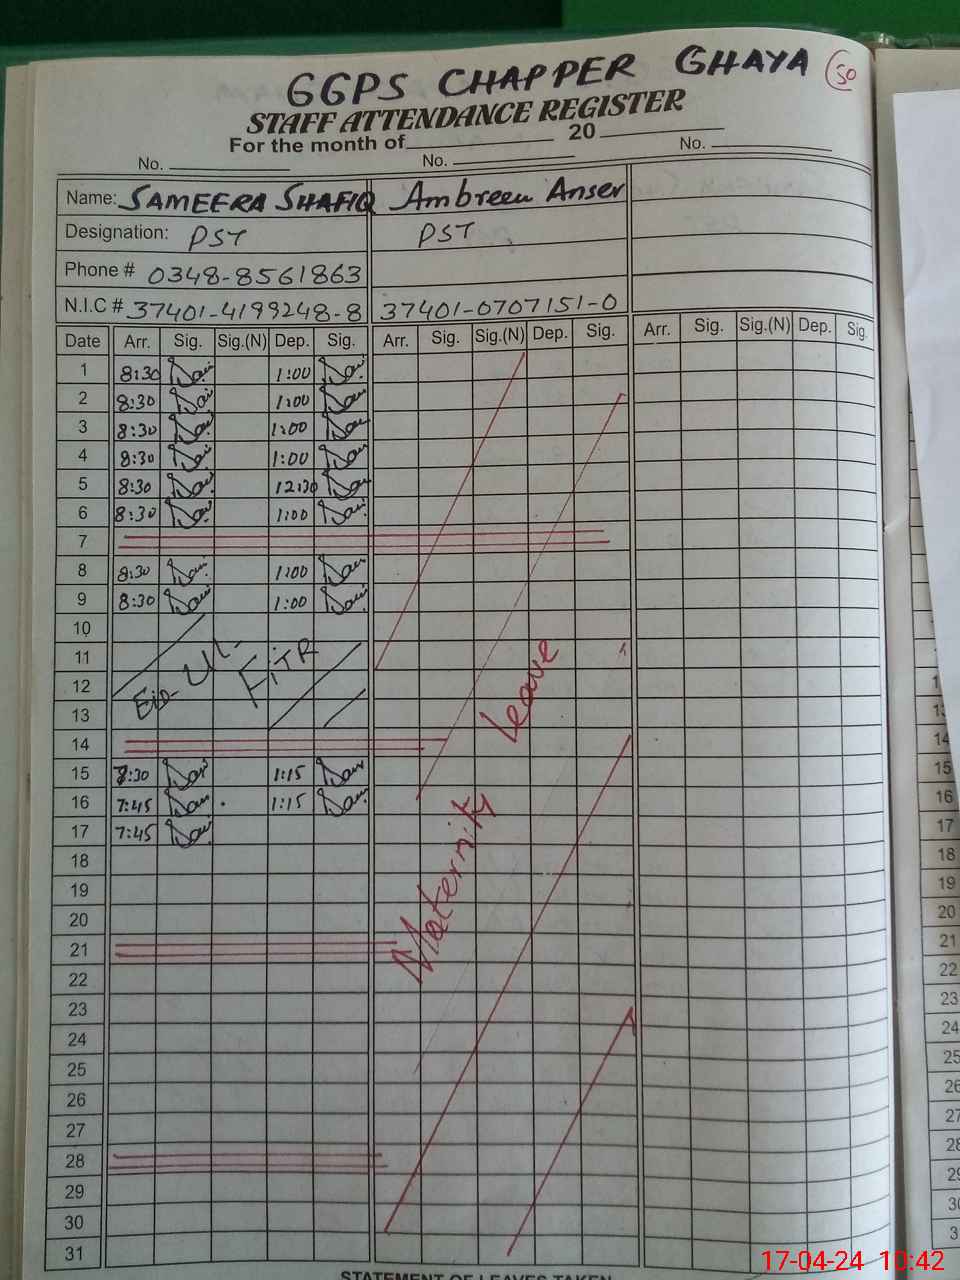 GGPS CHAPPER GHAYA 50
STAFF ATTENDANCE REGISTER
For the month of 20
No. No. No.
Name: SAMEERA SHAFIQ Ambreen Anser
Designation: PST PST
Phone # 0348-8561863
N.I.C # 37401-4199248-8 37401-0707151-0
Date Arr. Sig. Sig.(N) Dep. Sig. Arr. Sig. Sig.(N) Dep. Sig. Arr. Sig. Sig.(N) Dep. Sig.
1 8:30 1:00
2 8:30 1:00
3 8:30 1:00
4 8:30 1:00
5 8:30 12:30
6 8:30 1:00
7
8 8:30 1:00
9 8:30 1:00
10
11
12 Eid-Ul-FiTR
13
14
15 7:30 1:15
16 7:45 1:15
17 7:45
18
19
20
21 Maternity Leave
22
23
24
25
26
27
28
29
30
31
STATEMENT OF LEAVES TAKEN
14
15
16
17
18
19
20
21
22
23
24
25
26
27
28
29
17-04-24 10:42